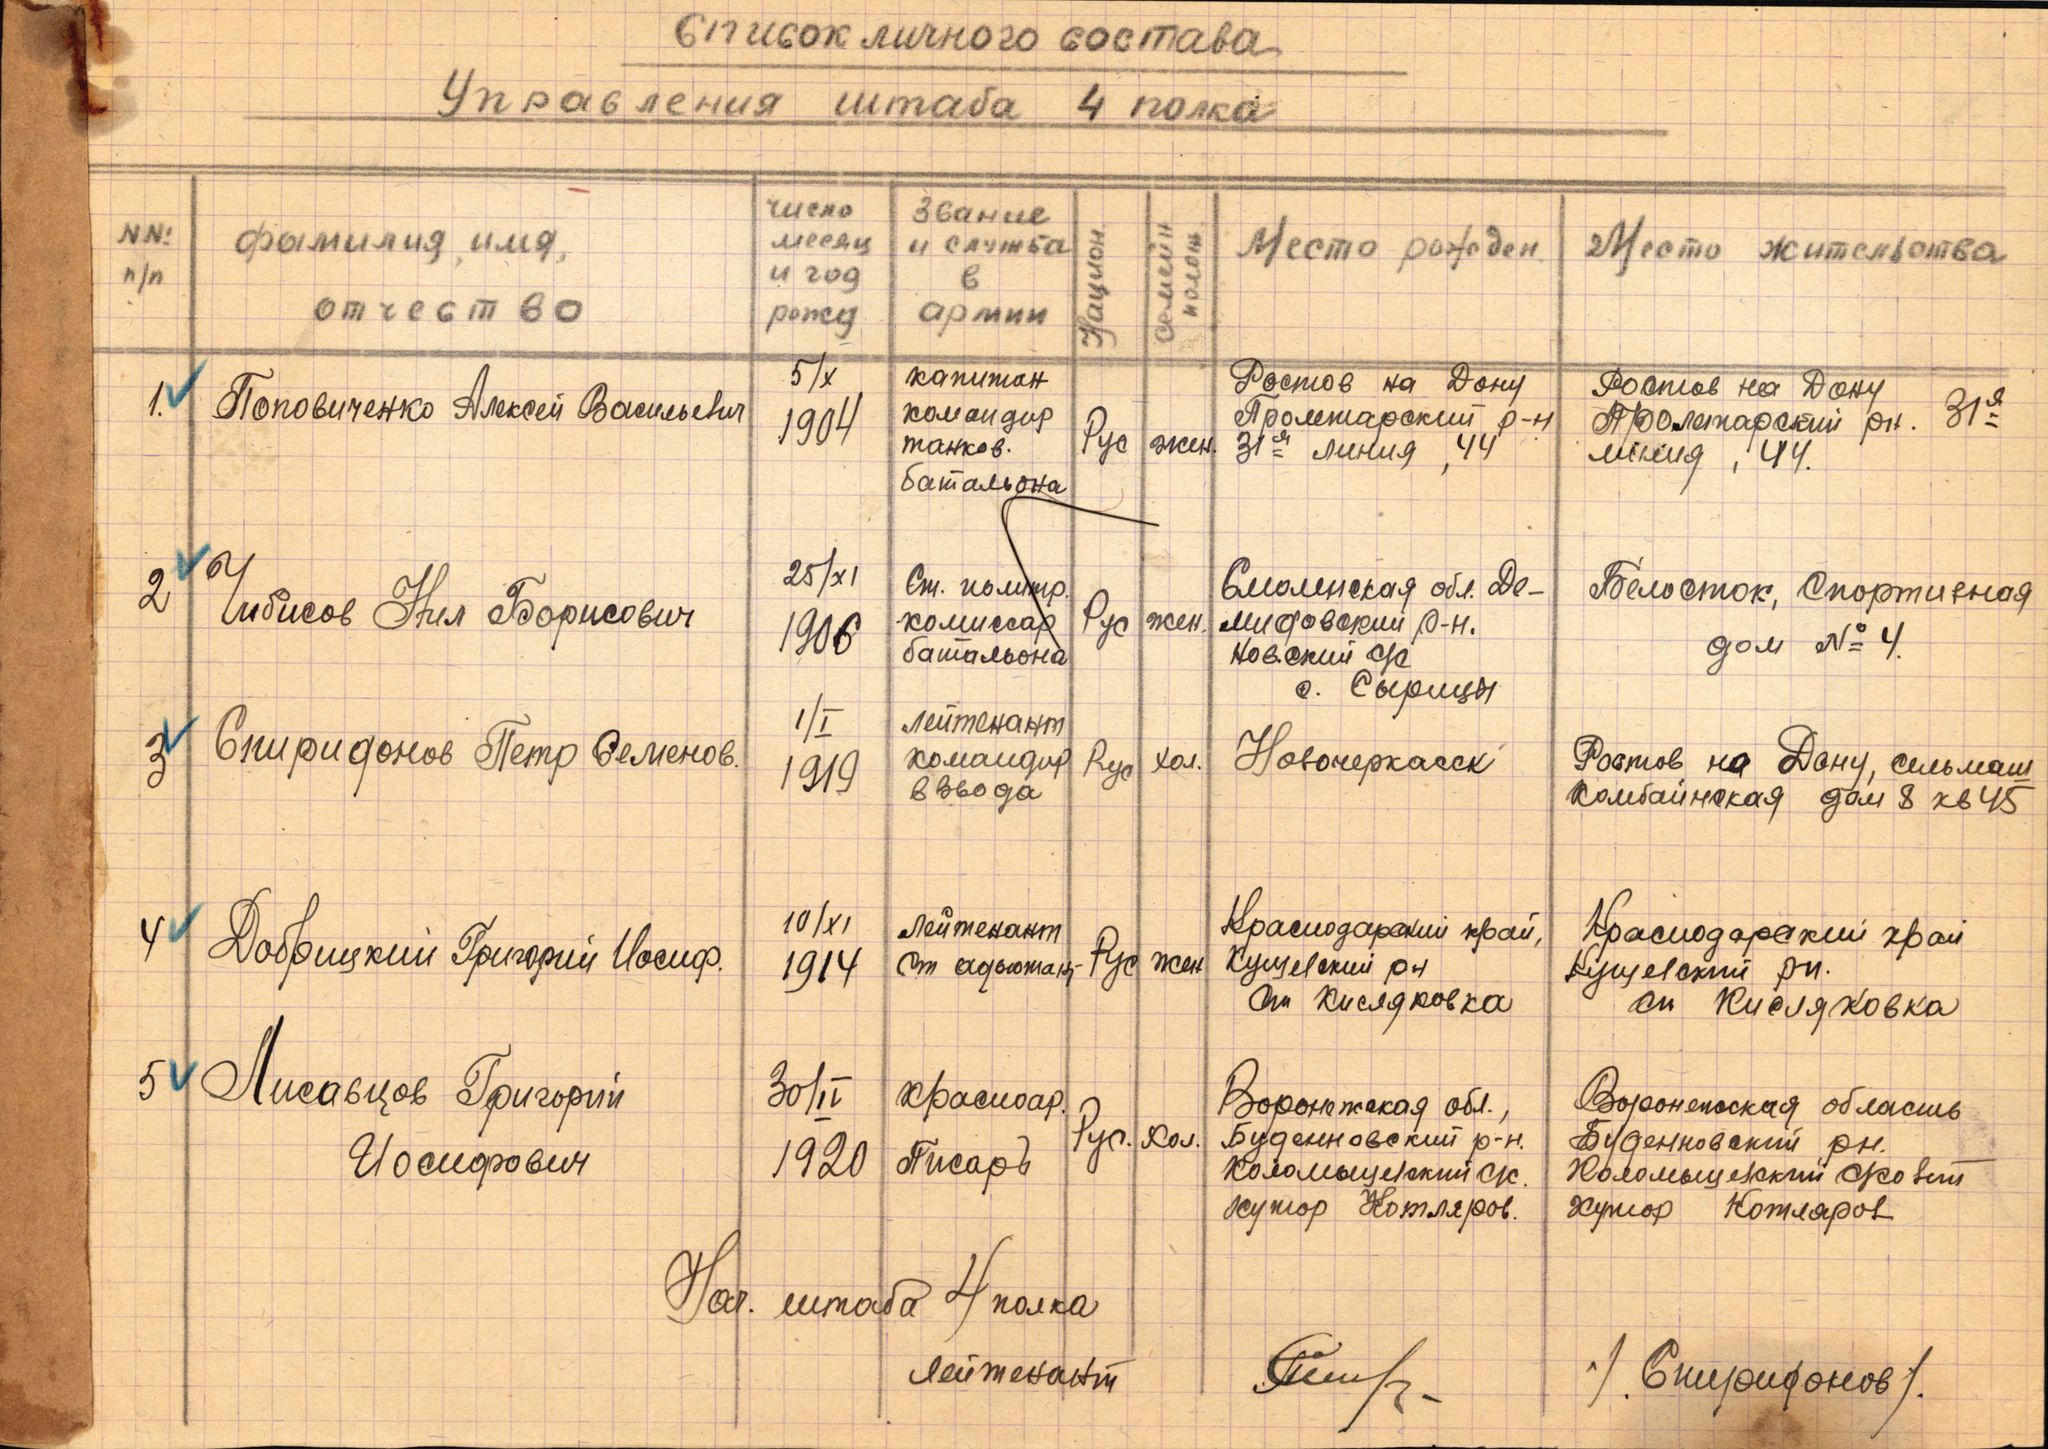 Список личного состава
Управления штаба 4 полка
NN: п/п
фамилия, имя, отчество
число месяц и год рожд
Звание и служба в армии
Национ
Семейн полож
Место рожден
Место жительства
1. Поповиченко Алексей Васильевич
5/X 1904
капитан
командир
танков.
батальона
Рус
жен.
Ростов на Дону
Пролетарский р-н
31я линия, 44
Ростов на Дону
Пролетарский рн. 31я
линия, 44.
2 Чибисов Нил Борисович
25/XI 1906
Ст. политр.
комиссар
батальона
Рус
жен.
Смоленская обл. Де-
мидовский р-н.
новский с/с
с. Сырицы
Белосток, Спортивная
дом № 4.
3 Спиридонов Петр Семенов.
1/I 1919
лейтенант
командир
взвода
Рус
хол.
Новочеркасск
Ростов на Дону, сельмаш
Комбайнская дом 8 кв 45
4 Добрицкий Григорий Иосиф.
10/XI 1914
лейтенант
Ст адъютант
Рус
жен
Краснодарский край,
Кущевский рн
Ст Кисляковка
Краснодарский край
Кущевский рн.
ст Кисляковка
5 Лисавцов Григорий
Иосифович
30/II 1920
красноар.
Писарь
Рус.
Хол.
Воронежская обл.,
Буденновский р-н.
Коломыцевский с/с.
хутор Котляров.
Воронежская область
Буденновский рн.
Коломыцевский с/совет
Хутор Котляров
Нач. штаба 4 полка
лейтенант
/. Спиридонов /.